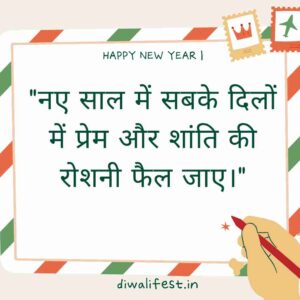 HAPPY NEW YEAR |
"नए साल में सबके दिलों
में प्रेम और शांति की
रोशनी फैल जाए।"
diwalifest.in